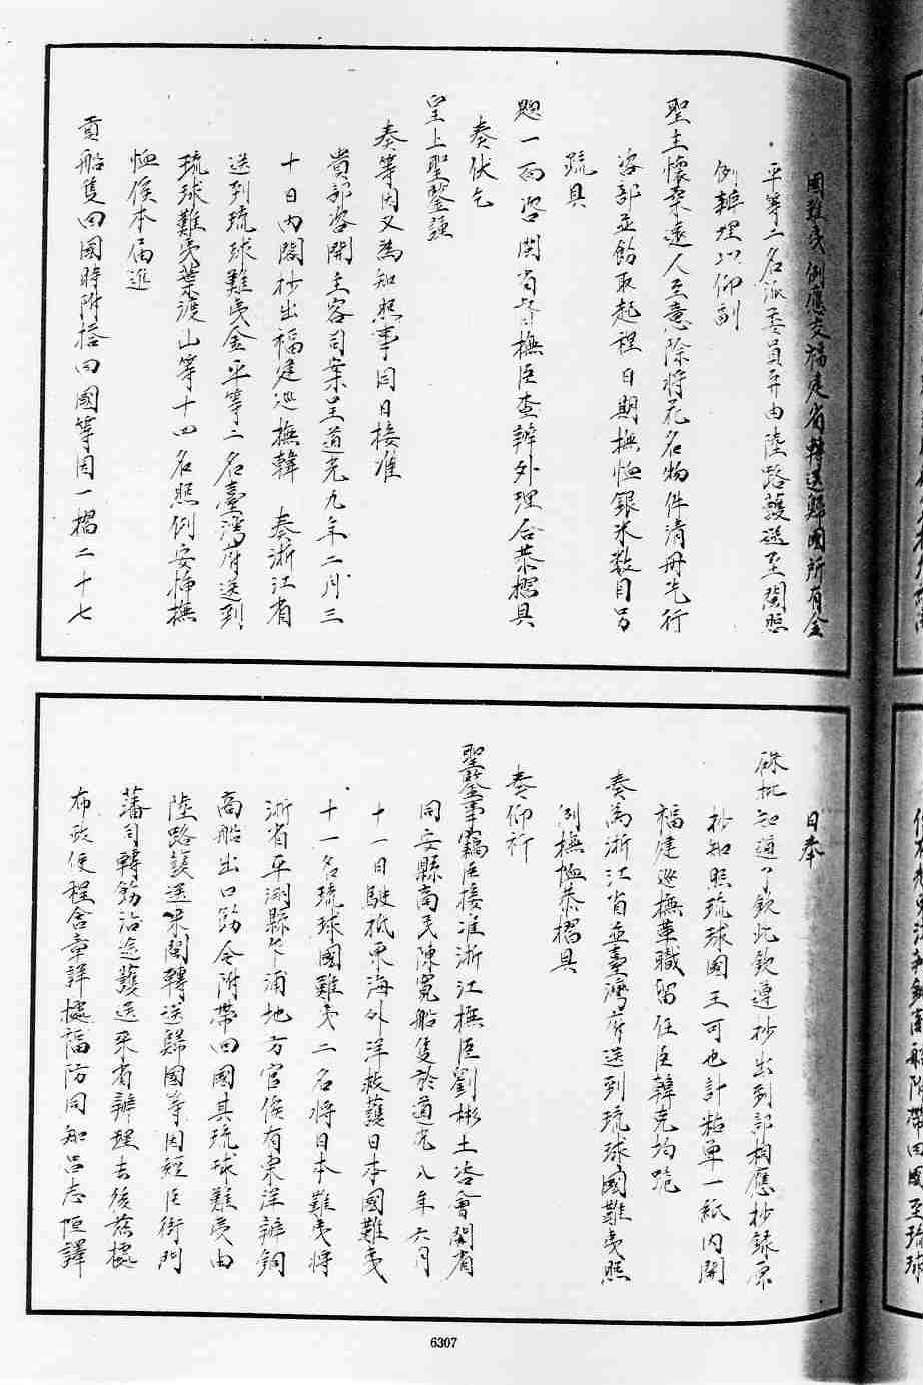 國難夷例應交福建省轉送歸國所有金
平等二名派委員弁由陸路護送至閩照
例辦理以仰副
聖主懷柔遠人至意除將花名物件清冊先行
咨部並飭取起程日期撫恤銀米數目另
疏具
題一面咨閩省督撫臣查辦外理合恭摺具
奏伏乞
皇上聖鑒謹
奏等因又為知照事同日接准
貴部咨開主客司案呈道光九年二月三
十日內閣抄出福建巡撫韓 奏浙江省
送到琉球難夷金平等二名臺灣府送到
琉球難夷葉渡山等十四名照例安插撫
恤俟本屆進
貢船隻回國時附搭回國等因一摺二十七
日奉
硃批知道了欽此欽遵抄出到部相應抄錄原
抄知照琉球國王可也計粘單一紙內開
福建巡撫革職留任臣韓克均跪
奏為浙江省並臺灣府送到琉球國難夷照
例撫恤恭摺具
奏仰祈
聖鑒事竊臣接准浙江撫臣劉彬士咨會閩省
同安縣商民陳寬船隻於道光八年六月
十一日駛抵東海外洋救護日本國難夷
十一名琉球國難夷二名將日本難夷將
浙省平湖縣乍浦地方官俟有東洋辦銅
商船出口飭令附帶回國其琉球難夷由
陸路護送來閩轉送歸國等因經臣衙門
藩司轉飭沿途護送來省辦理去後茲據
布政使程含章詳據福防同知呂志恒譯
6307